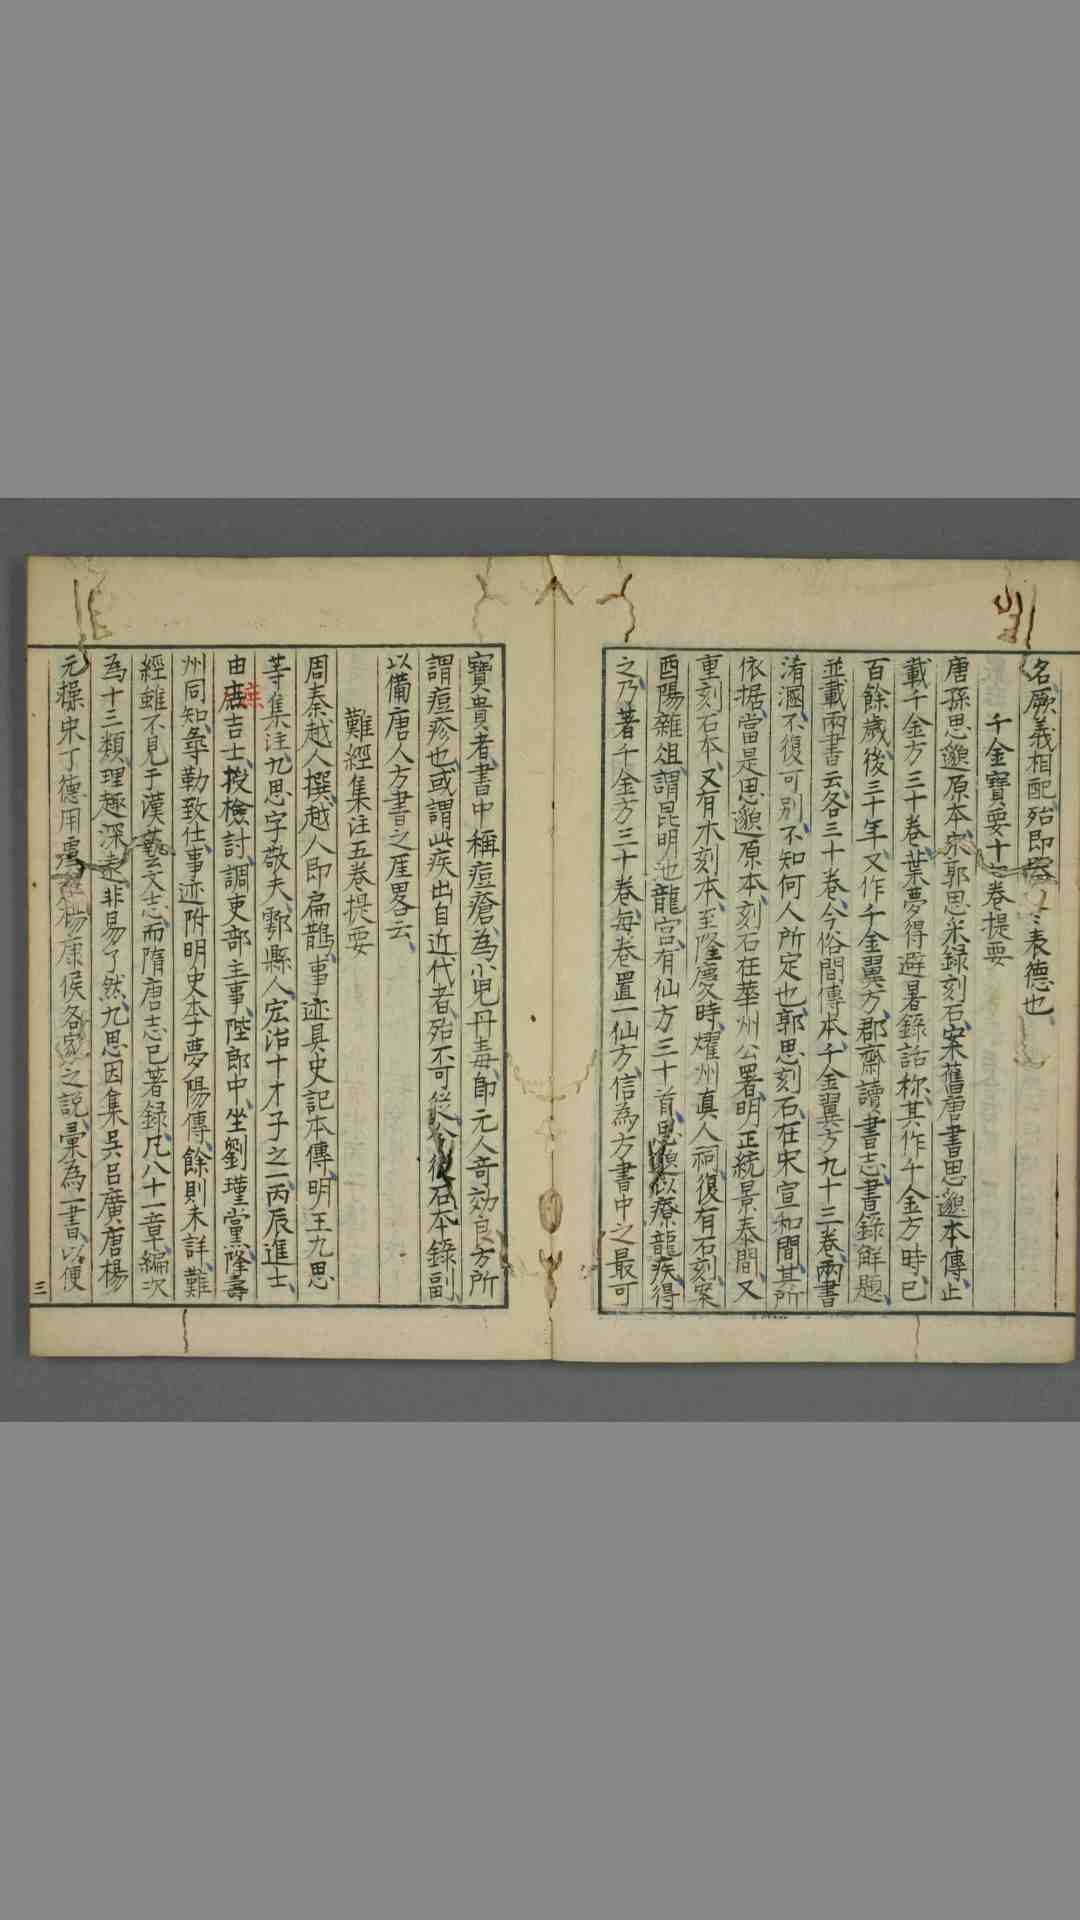 名厥義相配殆即器人之表德也
千金寶要十七卷提要
唐孫思邈原本宋郭思采錄刻石案舊唐書思邈本傳止
載千金方三十卷葉夢得避暑錄話称其作千金方時已
百餘歲後三十年又作千金翼方郡齋讀書志書錄解題
並載兩書云各三十卷今俗間傳本千金翼方九十三卷兩書
淆溷不復可別不知何人所定也郭思刻石在宋宣和間其所
依据當是思邈原本刻石在華州公署明正統景泰間又
重刻石本又有木刻本至隆慶時燿州真人祠復有石刻案
酉陽雜俎謂昆明池龍宮有仙方三十首思邈以療龍疾得
之乃著千金方三十卷每卷置一仙方信為方書中之最可
寶貴者書中稱痘瘡為小兒丹毒即元人奇効良方所
謂痘疹也或謂此疾出自近代者殆不可從今從石本錄副
以備唐人方書之厓畧云
難經集注五卷提要
周秦越人撰越人即扁鵲事迹具史記本傳明王九思
等集注九思字敬夫鄠縣人宏治十才子之一丙辰進士
由庶吉士授檢討調吏部主事陞郎中坐劉瑾黨降壽
庶
州同知尋勒致仕事迹附明史李夢陽傳餘則未詳難
經雖不見于漢藝文志而隋唐志已著錄凡八十一章編次
為十三類理趣深遠非易了然九思因集吳呂廣唐楊
元操宋丁德用虞庶楊康侯各家之說彙為一書以便
三